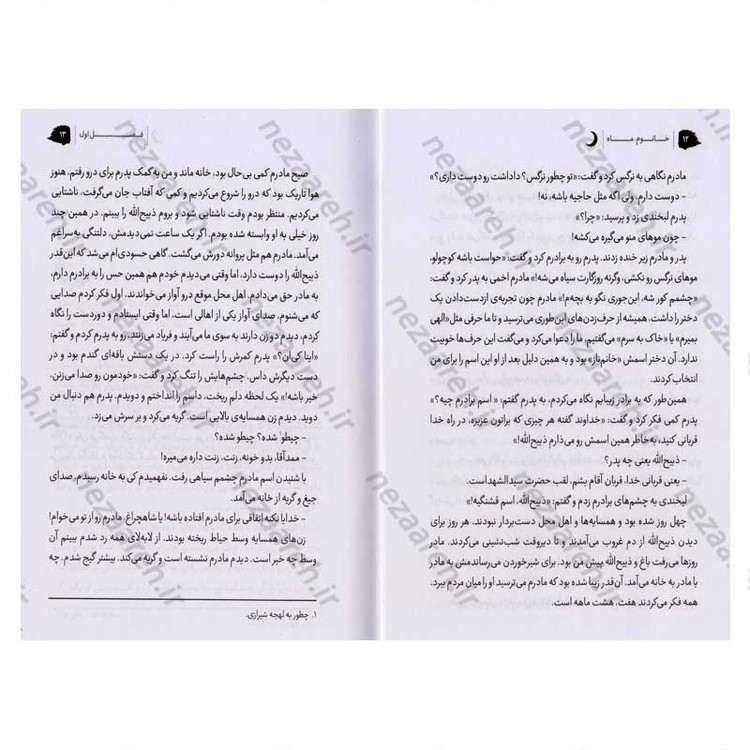 ۱۲ | خانوم ماه
مادرم نگاهی به نرگس کرد و گفت: «تو چطور نرگس؟ داداشت رو دوست داری؟»
- دوست دارم، ولی اگه مثل حاجیه باشه، نه!
پدرم لبخندی زد و پرسید: «چرا؟»
- چون موهای منو می‌گیره می‌کشه!
پدر و مادرم زیر خنده زدند. پدرم رو به برادرم کرد و گفت: «حواست باشه کوچولو،
موهای نرگس رو نکشی، وگرنه روزگارت سیاه می‌شه!» مادرم اخمی به پدر کرد و گفت:
«چشمم کور شه، این‌جوری نگو به بچه‌م!» مادرم چون تجربه‌ی ازدست‌دادن یک
دختر را داشت، همیشه از حرف‌زدن‌های این‌طوری می‌ترسید و تا ما حرفی مثل «الهی
بمیرم» یا «خاک به سرم» می‌گفتیم، ما را دعوا می‌کرد و می‌گفت این حرف‌ها خوبیت
ندارد. آن دختر اسمش «خانم‌ناز» بود و به همین دلیل بعد از او این اسم را برای من
انتخاب کردند.
همین‌طور که به برادر زیبایم نگاه می‌کردم، به پدرم گفتم: « اسم برادرم چیه؟»
پدرم کمی فکر کرد و گفت: «خداوند گفته هر چیزی که براتون عزیزه، در راه خدا
قربانی کنید، به‌خاطر همین اسمش رو می‌ذارم ذبیح‌الله!»
- ذبیح‌الله یعنی چه پدر؟
- یعنی قربانی خدا، قربان آقام بشم، لقب حضرت سیدالشهداست.
لبخندی به چشم‌های برادرم زدم و گفتم: «ذبیح‌الله، اسم قشنگیه!»
چهل روز شده بود و همسایه‌ها و اهل محل دست‌بردار نبودند. هر روز برای
دیدن ذبیح‌الله از دم غروب می‌آمدند و تا دیروقت شب‌نشینی می‌کردند. مادر
روزها می‌رفت باغ و ذبیح‌الله پیش من بود. برای شیرخوردن می‌رساندمش به مادر
یا مادر به خانه می‌آمد. آن‌قدر زیبا شده بود که مادرم می‌ترسید او را میان مردم ببرد.
همه فکر می‌کردند هفت، هشت ماهه است.
فصل اول | ۱۳
صبح مادرم کمی بی‌حال بود، خانه ماند و من به کمک پدرم برای درو رفتم. هنوز
هوا تاریک بود که درو را شروع می‌کردیم و کمی که آفتاب جان می‌گرفت، ناشتایی
می‌کردیم. منتظر بودم وقت ناشتایی شود و بروم ذبیح‌الله را ببینم. در همین چند
روز خیلی به او وابسته شده بودم. اگر یک ساعت نمی‌دیدمش، دلتنگی به‌سراغم
می‌آمد. مادرم هم مثل پروانه دورش می‌گشت. گاهی حسودی‌ام می‌شد که این‌قدر
ذبیح‌الله را دوست دارد، اما وقتی می‌دیدم خودم هم همین حس را به برادرم دارم،
به مادر حق می‌دادم. اهل محل موقع درو آواز می‌خواندند. اول فکر کردم صدایی
که می‌شنوم، صدای آواز یکی از اهالی است، اما وقتی ایستادم و دوردست را نگاه
کردم، دیدم دو زن دارند به سوی ما می‌آیند و فریاد می‌زنند. رو به پدرم کردم و گفتم:
«اینا کی‌ان؟» پدرم کمرش را راست کرد. در یک دستش بافه‌ای گندم بود و در
دست دیگرش داس. چشم‌هایش را تنگ کرد و گفت: «خودمون رو صدا می‌زنن،
خیر باشه!» یک لحظه دلم ریخت. داسم را انداختم و دویدم. پدرم هم دنبال من
دوید. دیدم زن همسایه‌ی بالایی است. گریه می‌کرد و بر سرش می‌زد.
- چیطو¹ شده؟ چیطو شده؟
- ممدآقا، بدو خونه، زنت، زنت داره می‌میره!
با شنیدن اسم مادرم چشمم سیاهی رفت. نفهمیدم کی به خانه رسیدم. صدای
جیغ و گریه از خانه می‌آمد.
- خدایا نکنه اتفاقی برای مادرم افتاده باشه! یا شاهچراغ، مادرم رو از تو می‌خوام!
زن‌های همسایه وسط حیاط ریخته بودند. از لابه‌لای همه رد شدم ببینم آن
وسط چه خبر است. دیدم مادرم نشسته است و گریه می‌کند. بیشتر گیج شدم. چه
۱. چطور به لهجه شیرازی.
nezaareh.ir